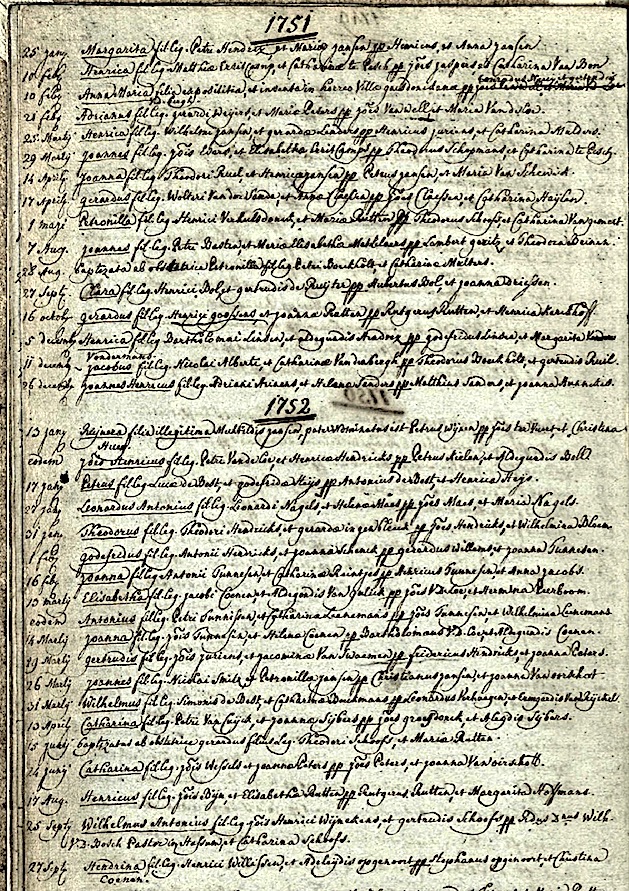 1751
25 janŋ Margarita fil leg. Petri Hendrix et Mariæ jansen pp Henricus, et Anna jansen
10 feb Henrica fil leg. Matthiæ et Catharinæ te Pesch pp jois jaspers, et Catharina Van Bon
10 feb Anna Maria filia expositilia et inventa in horreo Villæ pp
21 feb Adriannis fil leg. gerardi Weijers, et Mariæ Peters pp jois Van Dell, et Maria Van de Loe.
25 Martij Henrica fil leg. Wilhelmi jansen et gerardæ Linders pp Henricus juriens, et Catharina Mulders.
29 Martij Joannes fil leg. jois Evers, et Elisabetha pp Theodorus Schopmans et Catharina te Pesch.
14 Aprilis Joanna fil leg. Theodori Ruel et Henricæ jansen pp Petrus jansen, et Maria Van
17 Aprilis gerardus fil leg. Wolteri Van der Sande, et Anna Claesen pp jois Claessen, et Catharina
1 maii Petronilla fil leg. Henrici Verhulsdonck, et Mariæ Rutten pp Theodorus Schoofs et Catharina Van gemert.
7 Aug. Joannes fil leg. Petri Basten, et Mariæ Elisabethæ pp Lambert geritz, et Theodora
28 Aug. baptizata ab obstetrice Petronilla fil leg. Petri Boeckholt, et Catharinæ Mulders.
27 Sept. Clara fil leg. Henrici Bol, et gertrudis de Ruijter pp Hubertus Bol, et joanna Driessen.
16 octob gerardus fil leg. Henrici goossens et joannæ Rutten pp Rutgerus Rutten, et Henrica Kerckhoff
5 decemb Henrica fil leg. Bartholomæi Linsen, et aldegundis Andrex pp godefridus Linsen, et Margarita
Vondermans
11 decemb jacobus fil leg. Nicolai Alberts, et Catharinæ Vandenbergh pp Theodorus Boeckholt, et gertrudis Ruel.
26 decemb joannes Henricus fil leg. Adriani Ariaens, et Helenæ Sanders pp Matthias Sanders, et joanna
1752
13 janŋ Reijnera filia illegitima Mechtildis jansen, pater nominatus est Petrus Wijnen pp jois ter Voert, et Christina
eodem jois Henricus fil leg. Petri Van de Loe, et Henricæ Hendricks pp Petrus Kielen, et Aldegundis Boll
17 janŋ Petrus fil leg. Lucæ de Best, et godefridæ Heijs pp Antonius de Best, et Henrica Heijs.
27 janŋ Leonardus Antonius fil leg. Leonardi Nagels, et Helenæ Maes pp jois Maes, et Maria Nagels.
31 janŋ Theodorus fil leg. Theodori Hendricks, et gerardæ ingenbleeck pp jois Hendricks, et Wilhelmina Bloem.
1 feb godefridus fil leg. Antonii Hendricks, et joannæ Schenck pp gerardus Willems, et joanna Tunnesen.
16 feb Joanna fil leg. Antonii Tunnesen, et Catharinæ Reintjes pp Henricus Tunnesen, et Anna jacobs.
13 martij Elisabetha fil leg. jacobi Coenen, et Aldegondis Van Gulick pp jois V.D. Loe, et Hermina Peerboom.
eodem Antonius fil leg. Petri Tunnissen, et Catharinæ Lamemans pp jois Tunnesen, et Wilhelmina Lunemans
14 Martij joanna fil leg. jois Tunnesen, et Helenæ Coenen pp Bartholomæus V.D. Coert, Aldegundis Coenen.
19 Martij gertrudis fil leg. jois juriens, et jacominæ Van Swaemen pp fredericus Hendricks, et joanna Peters.
26 Martij joannes fil leg. Nicolai Smits, et Petronillæ jansen pp Christianus jansen, et joanna Van oirschot
31 Martij Wilhelmus fil leg. Simonis de Best, et Catharinæ Buckmans pp Leonardus Verhaegen, et
13 April Catharina fil leg. Petri Van Cuijck, et joannæ Sijbers pp jois groesdonck, et Aleydis Sijbers.
15 junij baptizatus ab obstetrice gerardus filius leg. Theodori Schoofs, et Mariæ Rutten.
24 junij Catharina fil leg. jois Wessels, et joannæ Peters pp jois Peters, et joanna Van oirschott.
17 Aug. Henricus fil leg. jois Bijn, et Elisabethæ Rutten pp Rutgerus Rutten, et Margarita Hoffmans.
25 Sept Wilhelmus Antonius fil leg. jois Henrici Wijnekens, et gertrudis Schoofs pp Rdus Dnus Wilh.
V.D. Bosch Pastor in Hassum, et Catharina Schoofs.
27 Sept Hendrina fil leg. Henrici Willissen, et Adelheidis opgenoort pp Stephanus opgenoort, et Christina
Coenen.